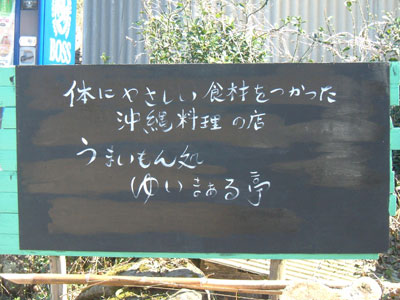 BOSS
体にやさしい食材をつかった
沖縄料理の店
うまいもん処
ゆいまぁる亭